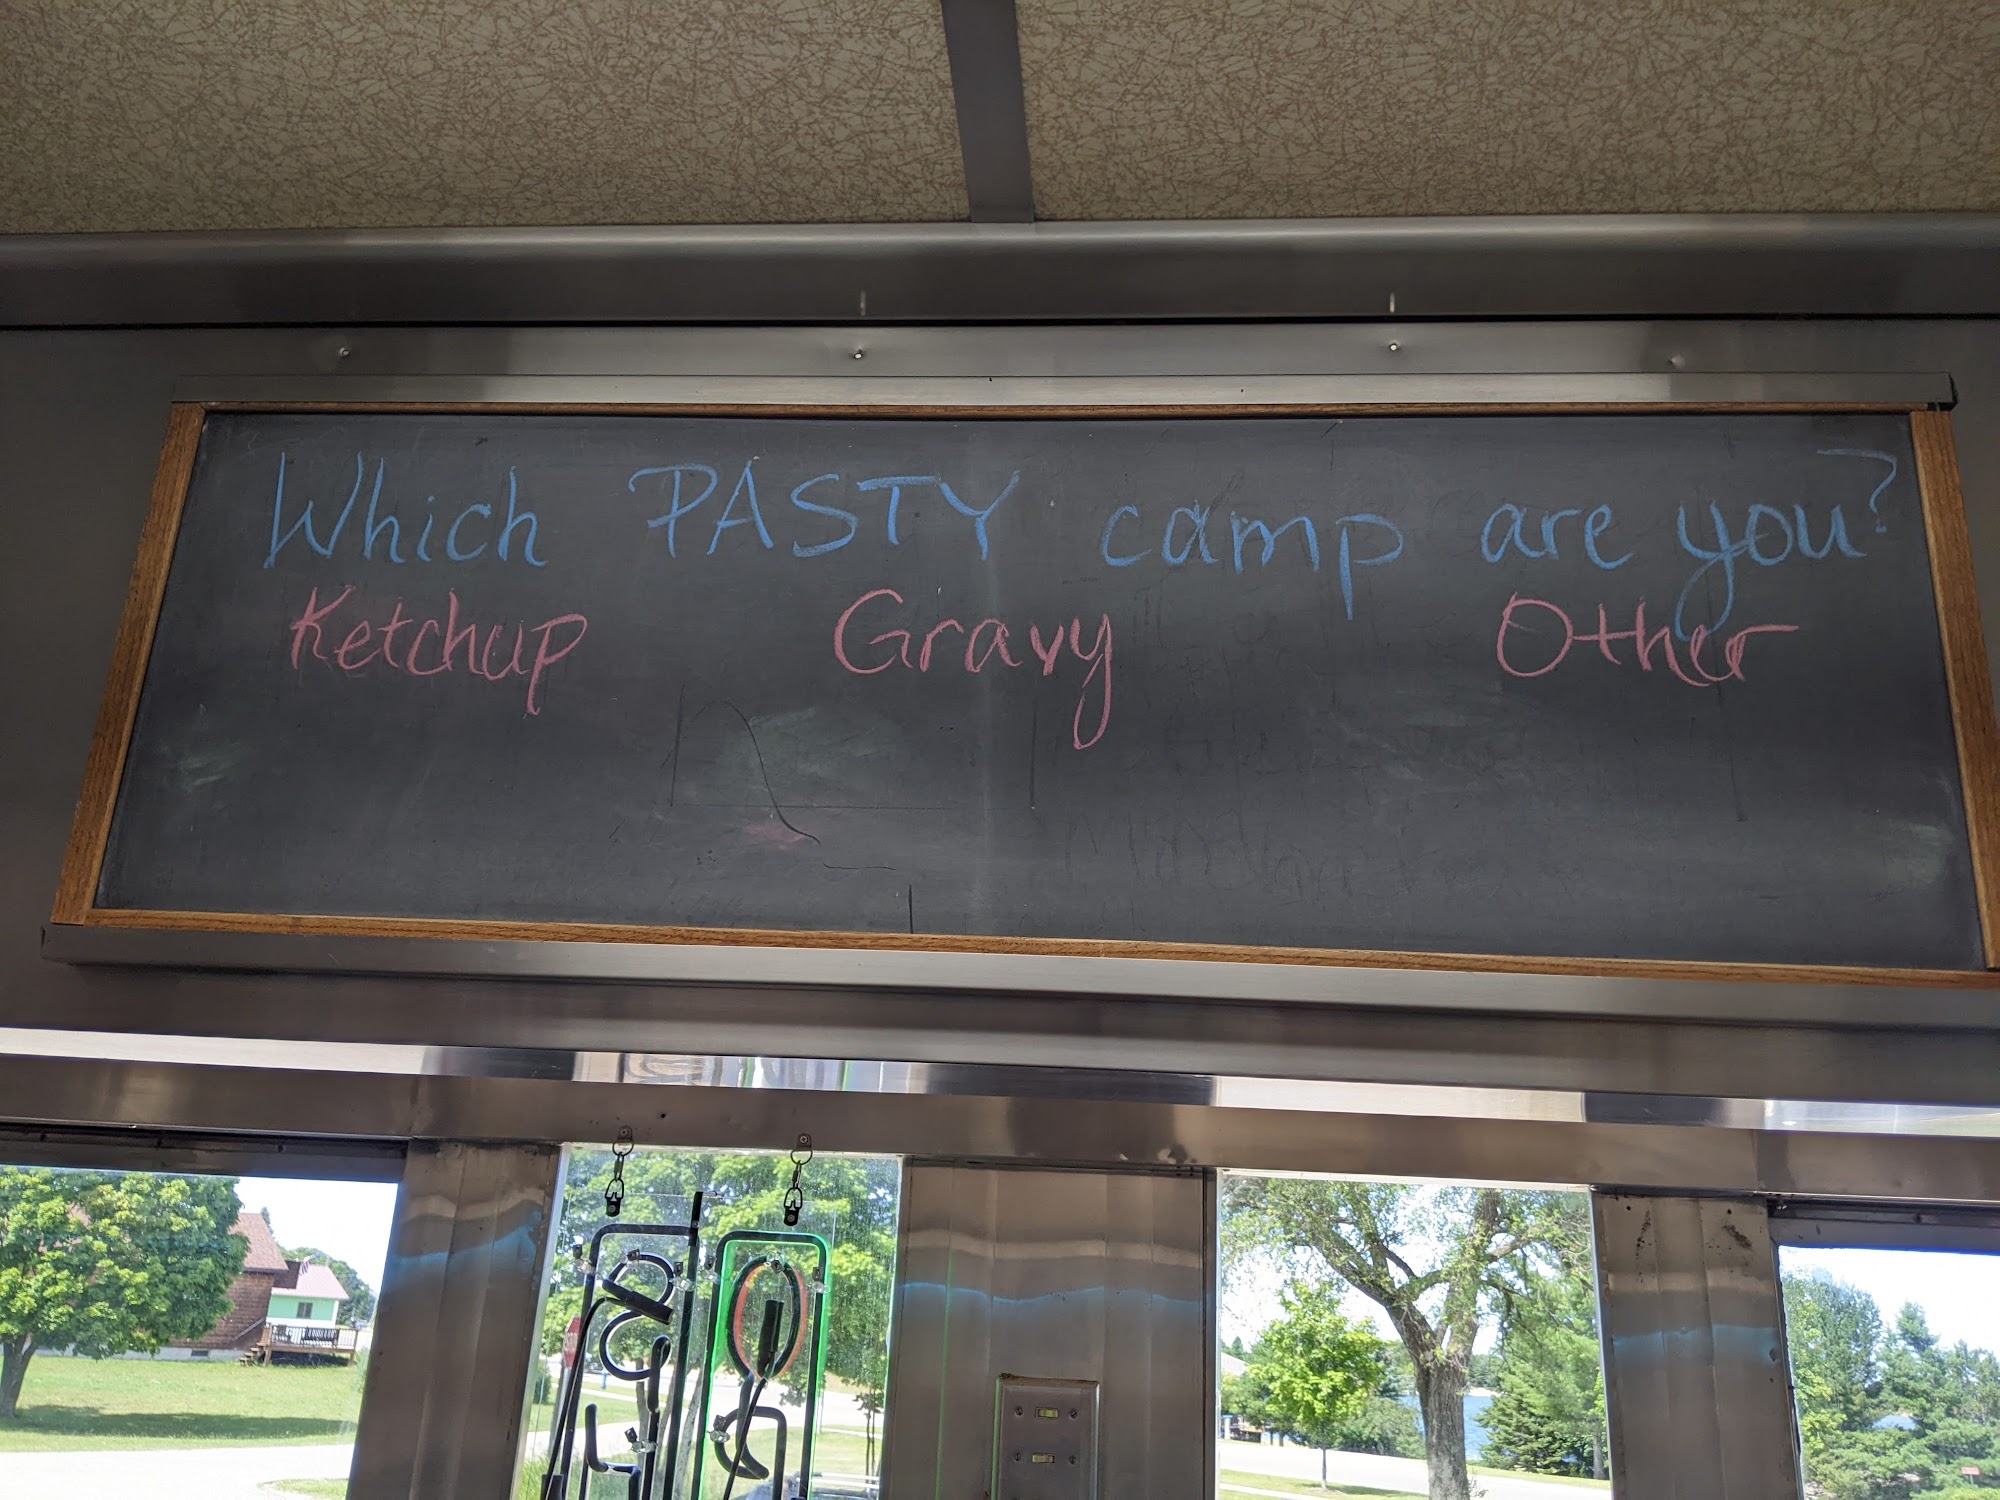 Which PASTY camp are you?
Ketchup Gravy Other